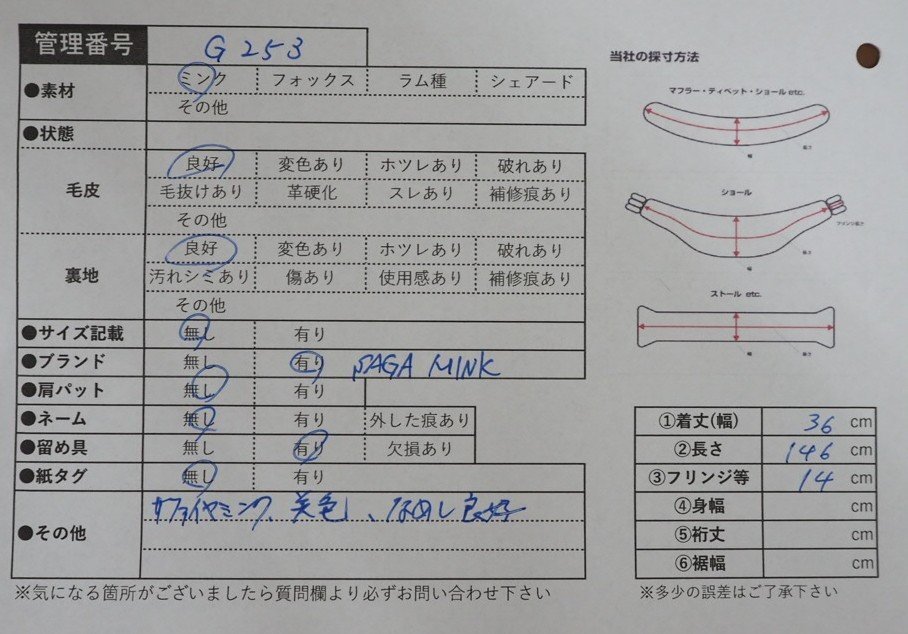 管理番号 G 253
●素材 ミンク フォックス ラム種 シェアード
その他
●状態
毛皮 良好 変色あり ホツレあり 破れあり
毛抜けあり 革硬化 スレあり 補修痕あり
その他
裏地 良好 変色あり ホツレあり 破れあり
汚れシミあり 傷あり 使用感あり 補修痕あり
その他
●サイズ記載 無し 有り
●ブランド 無し 有り SAGA MINK
●肩パット 無し 有り
●ネーム 無し 有り 外した痕あり
●留め具 無し 有り 欠損あり
●紙タグ 無し 有り
●その他 サファイヤミンク、美色、なめし良好
※気になる箇所がございましたら質問欄より必ずお問い合わせ下さい
当社の採寸方法
マフラー・ティペット・ショール etc.
幅 長さ
ショール
幅 長さ
ストール etc.
幅 長さ
①着丈(幅) 36 cm
②長さ 146 cm
③フリンジ等 14 cm
④身幅 cm
⑤裄丈 cm
⑥裾幅 cm
※多少の誤差はご了承下さい